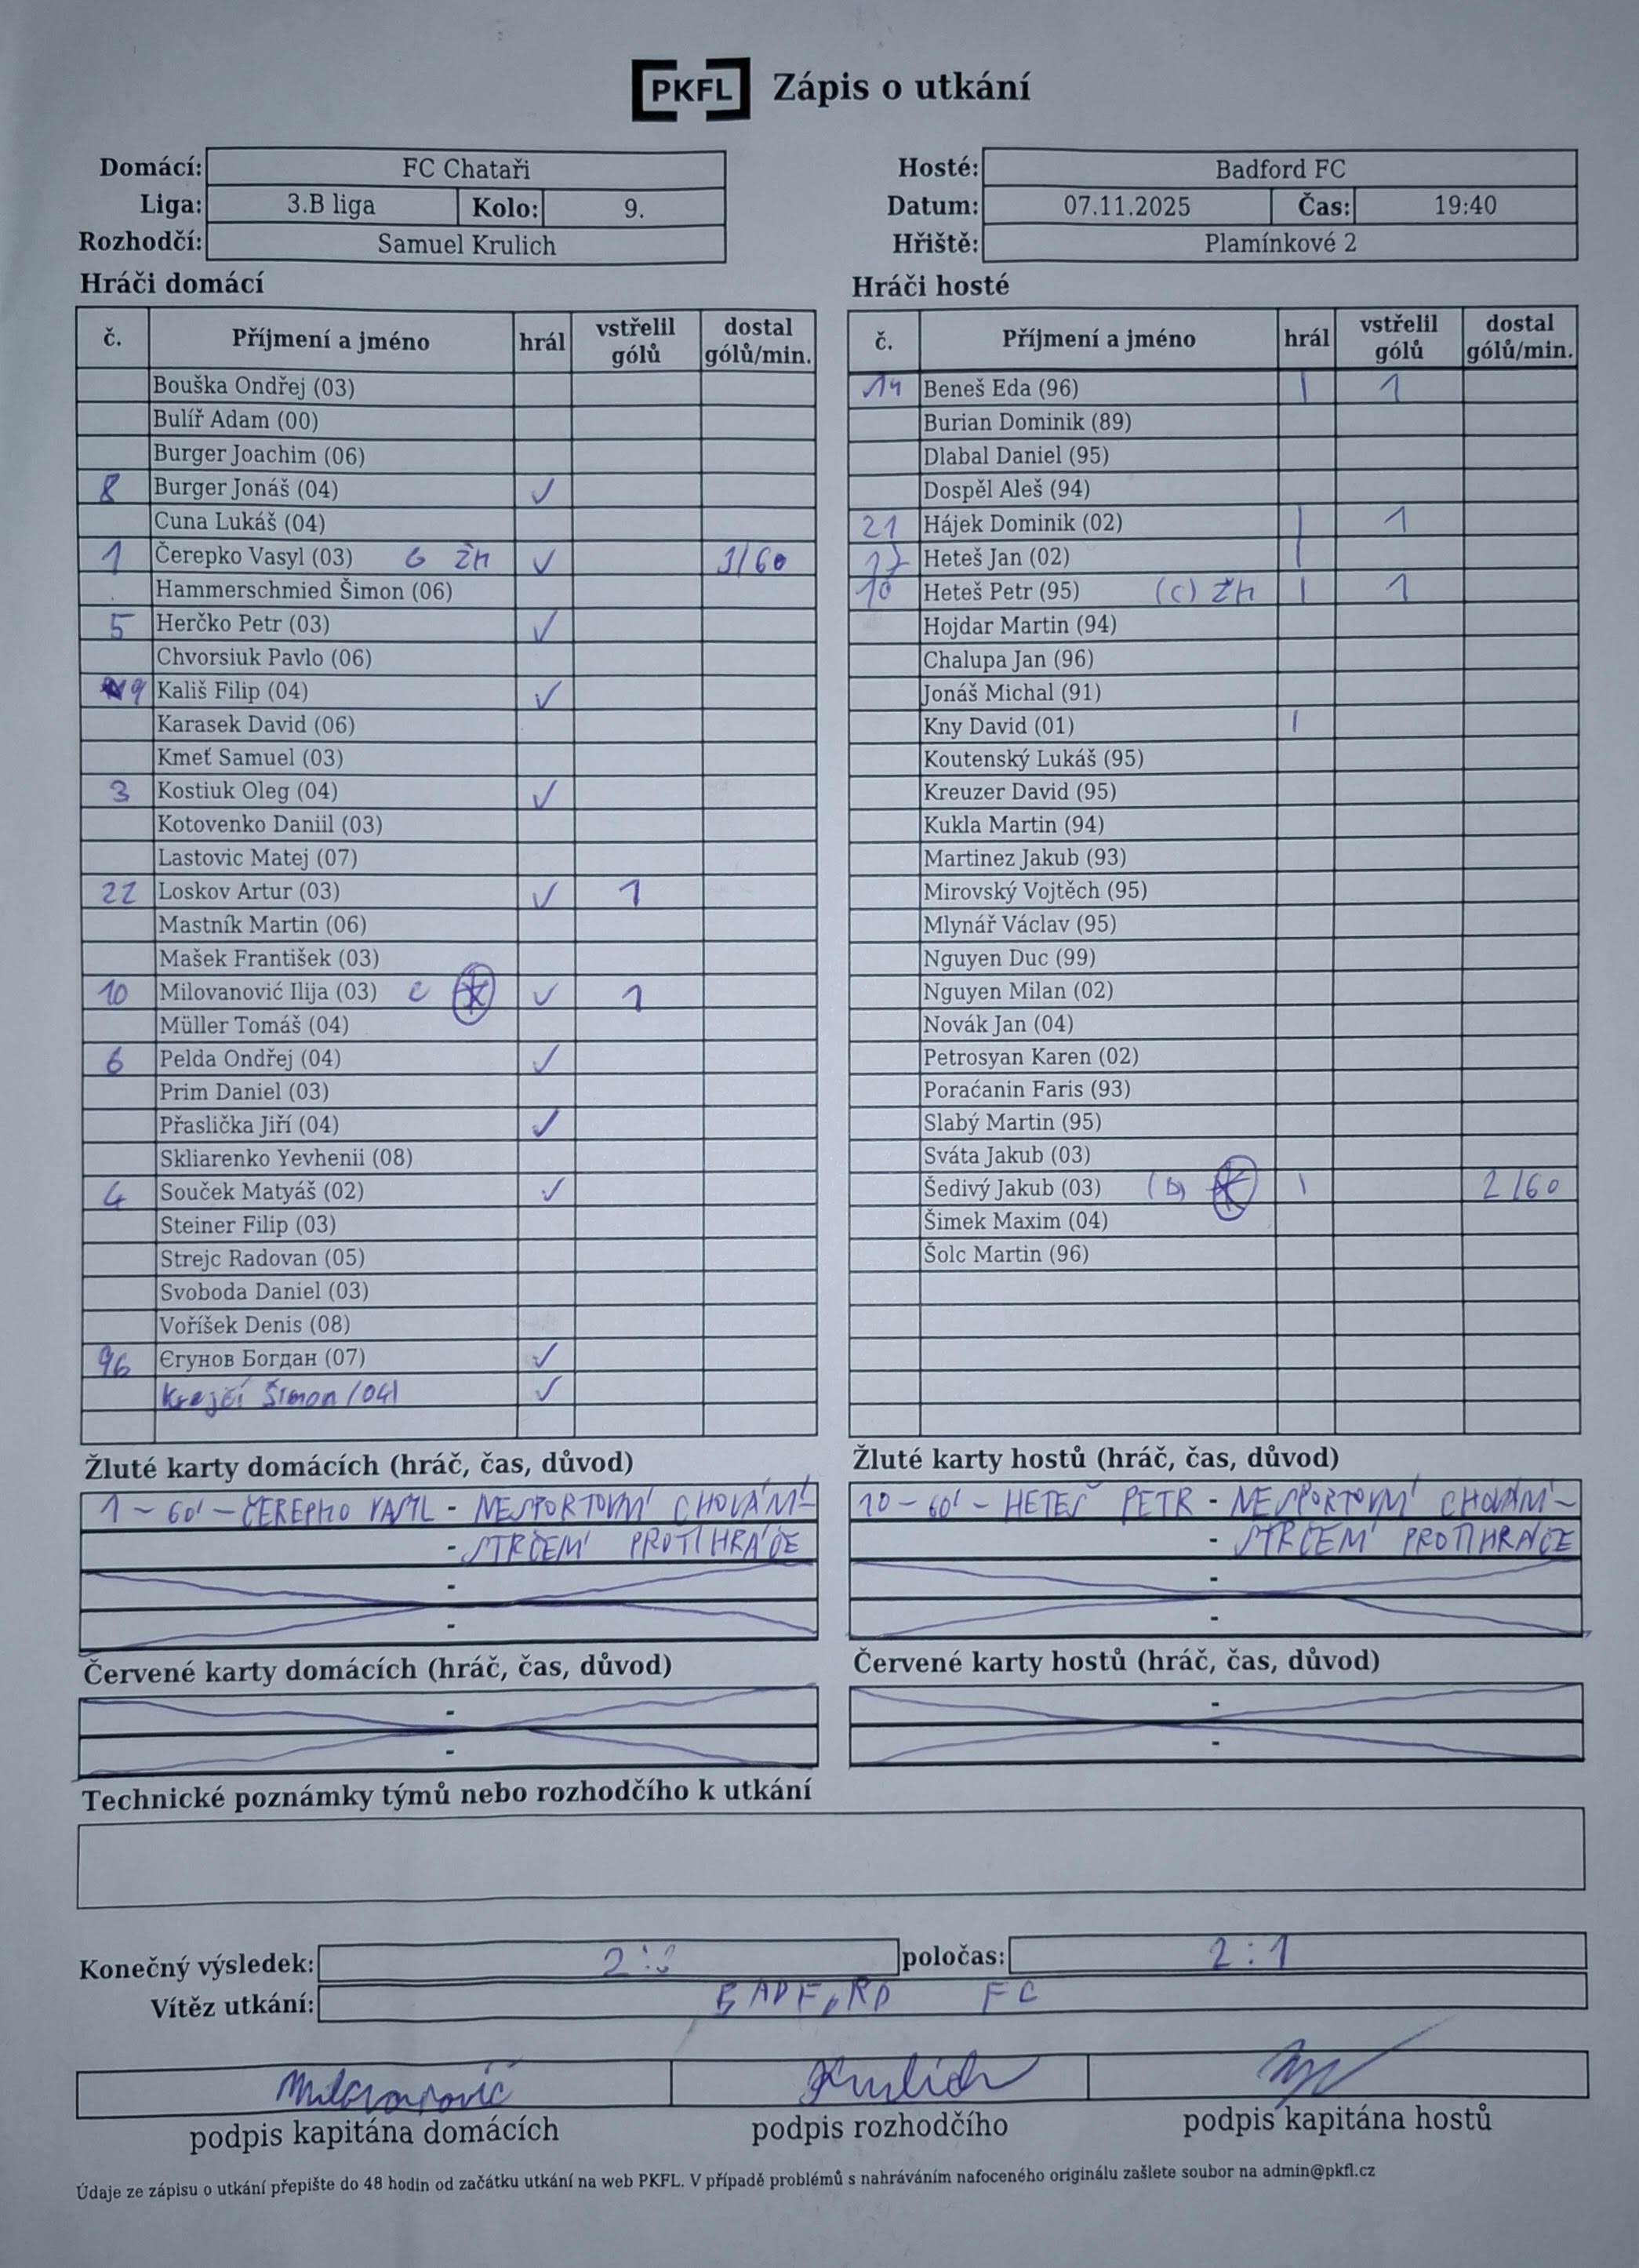 PKFL Zápis o utkání
Domácí: FC Chataři
Liga: 3.B liga Kolo: 9.
Rozhodčí: Samuel Krulich
Hosté: Badford FC
Datum: 07.11.2025 Čas: 19:40
Hřiště: Plamínkové 2
Hráči domácí
č. Příjmení a jméno hrál vstřelil gólů dostal gólů/min.
Bouška Ondřej (03)
Bulíř Adam (00)
Burger Joachim (06)
8 Burger Jonáš (04) ✓
Cuna Lukáš (04)
1 Čerepko Vasyl (03) G ŽK ✓ 3/60
Hammerschmied Šimon (06)
5 Herčko Petr (03) ✓
Chvorsiuk Pavlo (06)
9 Kališ Filip (04) ✓
Karasek David (06)
Kmeť Samuel (03)
3 Kostiuk Oleg (04) ✓
Kotovenko Daniil (03)
Lastovic Matej (07)
22 Loskov Artur (03) ✓ 1
Mastník Martin (06)
Mašek František (03)
10 Milovanović Ilija (03) C ✓ 1
Müller Tomáš (04)
6 Pelda Ondřej (04) ✓
Prim Daniel (03)
Přaslička Jiří (04) ✓
Skliarenko Yevhenii (08)
4 Souček Matyáš (02) ✓
Steiner Filip (03)
Strejc Radovan (05)
Svoboda Daniel (03)
Voříšek Denis (08)
96 Єгунов Богдан (07) ✓
Krejčí Šimon (04) ✓
Hráči hosté
č. Příjmení a jméno hrál vstřelil gólů dostal gólů/min.
14 Beneš Eda (96) | 1
Burian Dominik (89)
Dlabal Daniel (95)
Dospěl Aleš (94)
21 Hájek Dominik (02) | 1
17 Heteš Jan (02) |
10 Heteš Petr (95) (C) ŽK | 1
Hojdar Martin (94)
Chalupa Jan (96)
Jonáš Michal (91)
Kny David (01) |
Koutenský Lukáš (95)
Kreuzer David (95)
Kukla Martin (94)
Martinez Jakub (93)
Mirovský Vojtěch (95)
Mlynář Václav (95)
Nguyen Duc (99)
Nguyen Milan (02)
Novák Jan (04)
Petrosyan Karen (02)
Poraćanin Faris (93)
Slabý Martin (95)
Sváta Jakub (03)
Šedivý Jakub (03) | 2/60
Šimek Maxim (04)
Šolc Martin (96)
Žluté karty domácích (hráč, čas, důvod)
1 - 60' - ČEREPKO VASYL - NESPORTOVNÍ CHOVÁNÍ -
- STRČENÍ PROTIHRÁČE
-
-
Žluté karty hostů (hráč, čas, důvod)
10 - 60' - HETEŠ PETR - NESPORTOVNÍ CHOVÁNÍ -
- STRČENÍ PROTIHRÁČE
-
-
Červené karty domácích (hráč, čas, důvod)
-
-
Červené karty hostů (hráč, čas, důvod)
-
-
Technické poznámky týmů nebo rozhodčího k utkání
Konečný výsledek: 2:3 poločas: 2:1
Vítěz utkání: BADFORD FC
Milovanović Krulich
podpis kapitána domácích podpis rozhodčího podpis kapitána hostů
Údaje ze zápisu o utkání přepište do 48 hodin od začátku utkání na web PKFL. V případě problémů s nahráváním nafoceného originálu zašlete soubor na admin@pkfl.cz